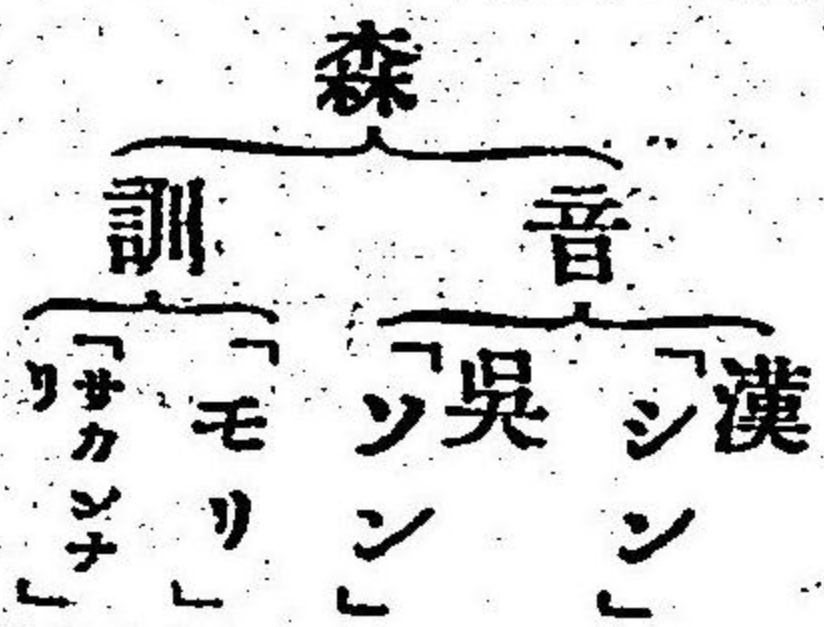 森
音
訓
漢「シン」
呉「ソン」
「モリ」
「サカンナ
リ」